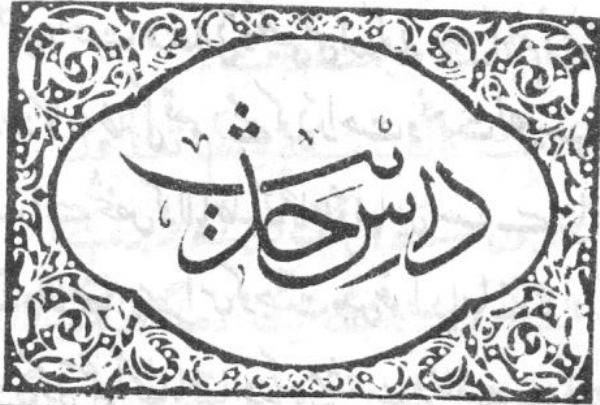 درسِ حدیث